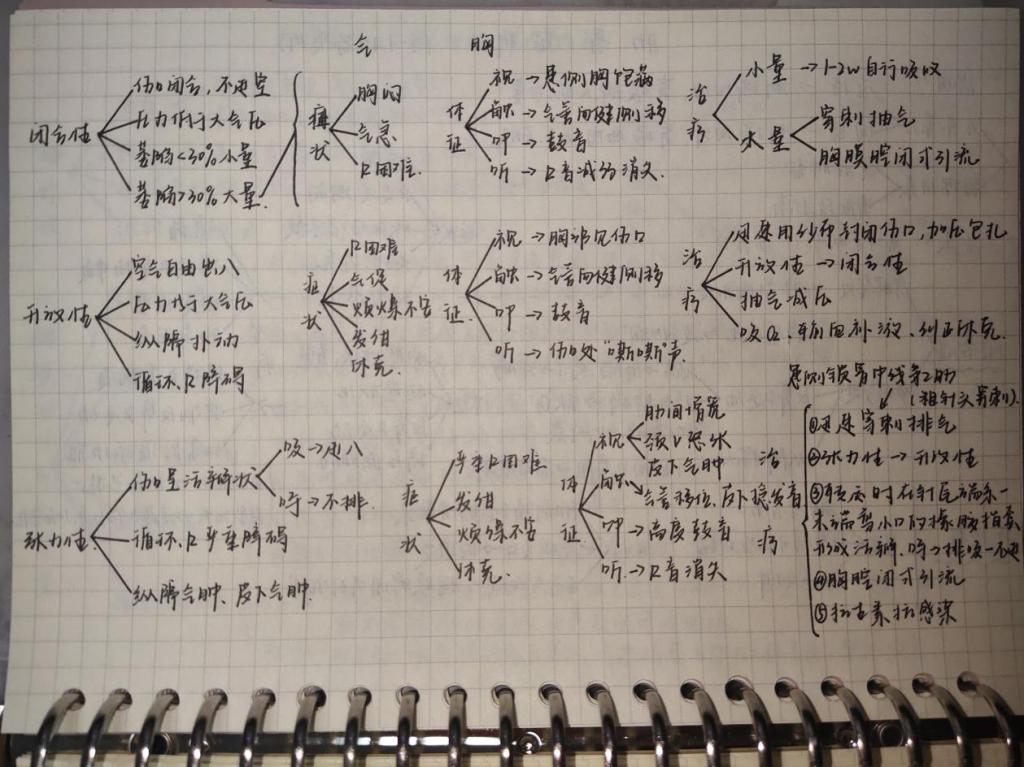 气 胸
闭合性
伤口闭合,不进空
压力低于大气压
萎肺<30%小量
萎肺>30%大量
症状
胸闷
气急
R困难.
体征
视→患侧胸饱满
触→气管向健侧移
叩→鼓音
听→R音减弱消失.
治疗
小量→1-2w自行吸收
大量
穿刺抽气
胸膜腔闭式引流
开放性
空气自由出入
压力协于大气压
纵膈扑动
循环、R障碍
症状
R困难
气促
烦燥不安
发绀
休克.
体征.
视→胸部见伤口
触→气管向健侧移
叩→鼓音
听→伤口处"嘶嘶"声.
治疗
迅速用纱布封闭伤口,加压包扎
开放性→闭合性
抽气减压
吸O2、输血补液、纠正休克.
张力性
伤口呈活瓣状
吸→进入
呼→不排.
循环、R严重障碍
纵膈气肿、皮下气肿.
症状
严重R困难
发绀
烦燥不安
休克.
体征
视
肋间增宽
颈V怒张
皮下气肿
触→气管移位、皮下捻发音
叩→高度鼓音
听→R音消失
治疗
患侧锁骨中线第2肋
(粗针头穿刺).
①迅速穿刺排气
②张力性→开放性
③转运时在针尾端系一
末端剪小口的橡胶指套,
形成活瓣、呼→排吸→不进
④胸腔闭式引流
⑤抗古素抗感染